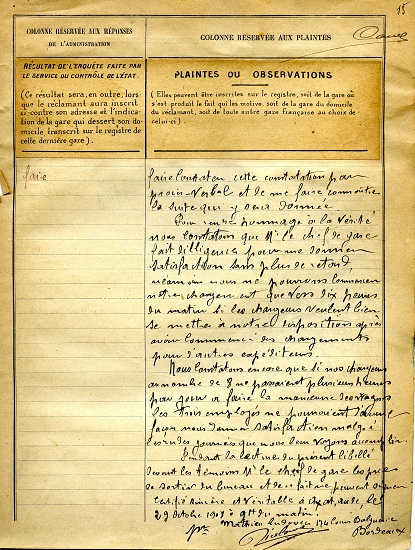 15
COLONNE RÉSERVÉE AUX RÉPONSES
DE L'ADMINISTRATION
COLONNE RÉSERVÉE AUX PLAINTES
RÉSULTAT DE L'ENQUÊTE FAITE PAR
LE SERVICE DU CONTRÔLE DE L'ÉTAT.
(Ce résultat sera, en outre, lors-
que le réclamant aura inscrit
ci-contre son adresse et l'indica-
tion de la gare qui dessert son do-
micile transcrit sur le registre de
cette dernière gare).
PLAINTES OU OBSERVATIONS
(Elles peuvent être inscrites sur le registre, soit de la gare où
s'est produit le fait qui les motive, soit de la gare du domicile
du réclamant, soit de toute autre gare française au choix de
celui-ci)
faire
faire constater cette constatation par
procès-verbal et de me faire connaître
la suite qui y sera donnée
Pour rendre hommage à la vérité
nous constatons que Mr le chef de gare
fait diligence pour me donner
satisfaction sans plus de retard,
nous ne pourrons commencer
notre chargement que vers dix heures
du matin si les chargeurs veulent bien
se mettre à notre disposition après
avoir commencé des chargements
pour d'autres expéditeurs.
Nous constatons encore que si nos chargeurs
au nombre de 8 ne passaient plusieurs heures
par jour a faire la manœuvre des wagons
les trois employés ne pourraient d'aucune
façon nous donner satisfaction malgré
journées que nous leur voyons accomplir.
la lecture du présent libellé
devant les témoins Mr le chef de gare
de sortir du bureau et de
certifié sincère et véritable à
29 Octobre 9h du matin.
Mathieu Ludovic 174 Cours Balguerie
Bordeaux